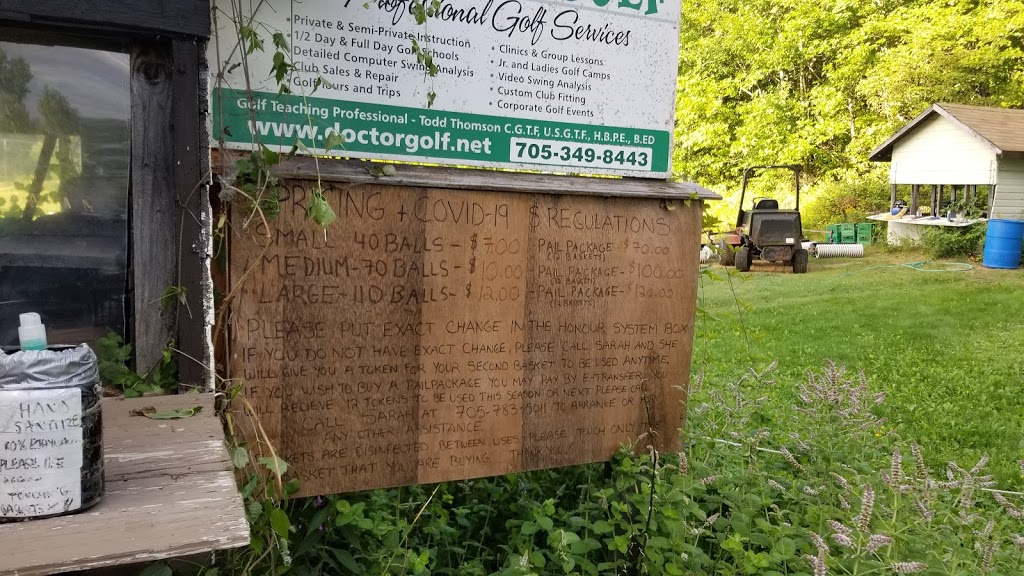 Professional Golf Services
• Private & Semi-Private Instruction
1/2 Day & Full Day Golf Schools
Detailed Computer Swing Analysis
Club Sales & Repair
Golf Tours and Trips
• Clinics & Group Lessons
• Jr. and Ladies Golf Camps
• Video Swing Analysis
• Custom Club Fitting
• Corporate Golf Events
Golf Teaching Professional - Todd Thomson C.G.T.F, U.S.G.T.F., H.B.P.E., B.ED
www.doctorgolf.net 705-349-8443
PRICING + COVID-19 $ REGULATIONS
SMALL - 40 BALLS - $7.00 PAIL PACKAGE - $70.00
(12 BASKETS)
MEDIUM - 70 BALLS - $10.00 PAIL PACKAGE - $100.00
(12 BASKETS)
LARGE - 110 BALLS - $12.00 PAIL PACKAGE - $120.00
(12 BASKETS)
PLEASE PUT EXACT CHANGE IN THE HONOUR SYSTEM BOX
IF YOU DO NOT HAVE EXACT CHANGE, PLEASE CALL SARAH AND SHE
WILL GIVE YOU A TOKEN FOR YOUR SECOND BASKET TO BE USED ANYTIME.
IF YOU WISH TO BUY A PAIL PACKAGE YOU MAY PAY BY E-TRANSFER
RECIEVE 12 TOKENS TO BE USED THIS SEASON OR NEXT. PLEASE
CALL SARAH AT 705-783-5011 TO ARRANGE OR
ANY OTHER ASSISTANCE.
ARE DISINFECTED BETWEEN USES. PLEASE TOUCH ONLY
THAT YOU ARE BUYING. THANK YOU
HAND
SANITIZE
PLEASE USE
TOUCHING
BASKETS